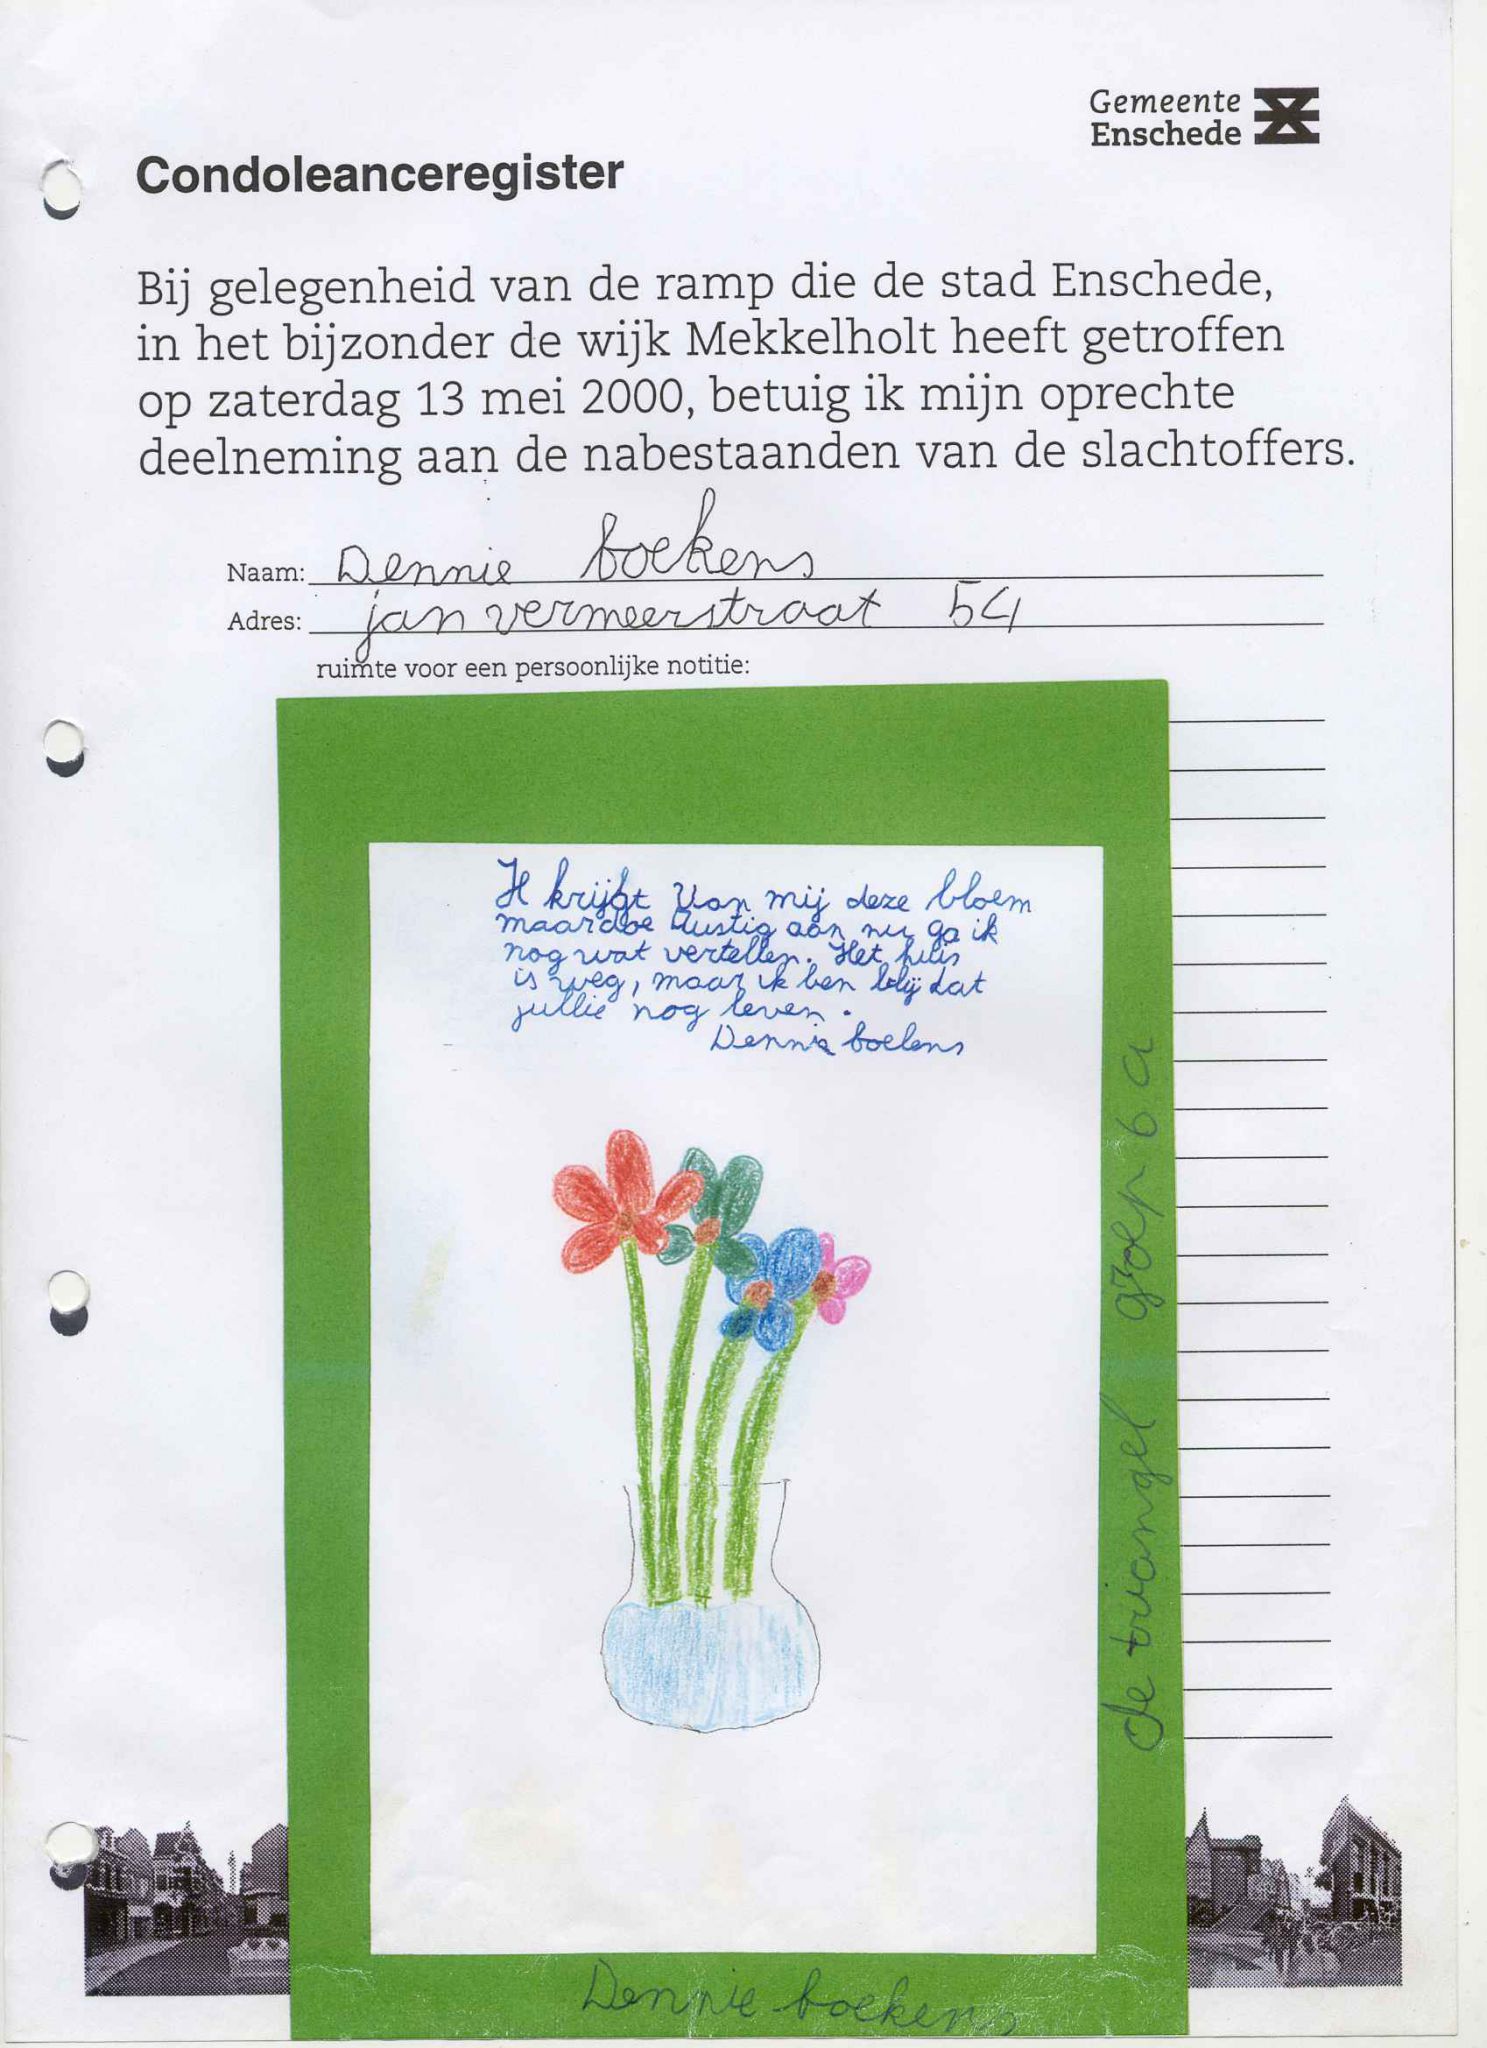 Gemeente
Enschede
Condoleanceregister
Bij gelegenheid van de ramp die de stad Enschede,
in het bijzonder de wijk Mekkelholt heeft getroffen
op zaterdag 13 mei 2000, betuig ik mijn oprechte
deelneming aan de nabestaanden van de slachtoffers.
Naam: Dennie boekens
Adres: jan vermeerstraat 54
ruimte voor een persoonlijke notitie:
krijgt van mij deze bloem
maar doe rustig aan nu ga ik
nog wat vertellen. Het huis
is weg, maar ik ben blij dat
jullie nog leven.
Dennie boekens
de triangel groep 6 a
Dennie boekens